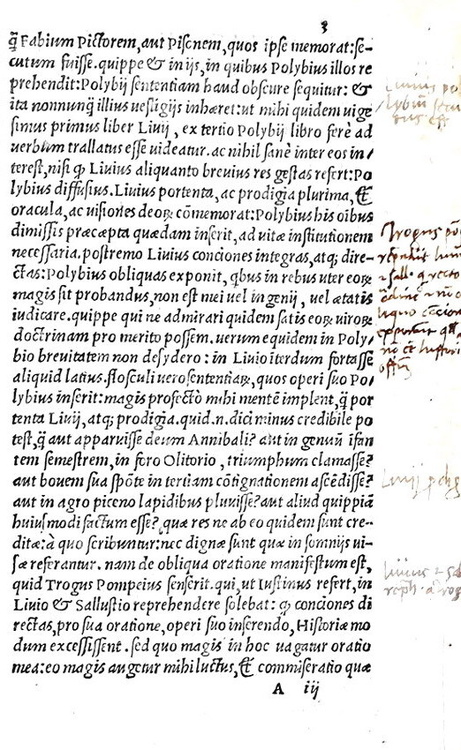 3
q̃ Fabium Pictorem, aut Pisonem, quos ipse memorat: se-
cutum fuisse. quippe & in ijs, in quibus Polybius illos re
prehendit: Polybij sententiam haud obscure sequitur: &
ita nonnunq̃ illius uestigijs inhæret: ut mihi quidem uige
simus primus liber Liuij, ex tertio Polybij libro ferè ad
uerbum trallatus esse uideatur. ac nihil sanè inter eos in/
terest, nisi q̃ Liuius aliquanto breuius res gestas refert: Po
lybius diffusius. Liuius portenta, ac prodigia plurima, &
oracula, ac uisiones deoꝝ cõmemorat: Polybius his oĩbus
dimissis præcæpta quædam inserit, ad uitæ institutionem
necessaria. postremo Liuius conciones integras, atq; dire-
ctas: Polybius obliquas exponit, qbus in rebus uter eoꝝ
magis sit probandus, non est mei uel ingenij, uel ætatis
iudicare. quippe qui ne admirari quidem satis eoꝝ uiroꝝ
doctrinam pro merito possem. uerum equidem in Poly/
bio breuitatem non desydero: in Liuio ĩterdum fortasse
aliquid latius. flosculi uero sententiaꝝ, quos operi suo Po/
lybius inserit: magis profectò mihi mentẽ implent, q̃ por
tenta Liuij, atq; prodigia. quid. n. dici minus credibile po
test, q̃ aut apparuisse deum Annibali? aut in genuũ ĩfan
tem semestrem, in foro Olitorio, triumphum clamasse?
aut bouem sua spõte in tertiam cõtignationem ascẽdisse?
aut in agro piceno lapidibus pluuisse? aut aliud quippiã
huiusmodi factum esse? quæ res ne ab eo quidem sunt cre-
ditæ: à quo scribuntur: nec dignæ sunt quæ in somnijs ui-
sæ referantur. nam de obliqua oratione manifestum est,
quid Trogus Pompeius senserit. qui, ut Iustinus refert, in
Liuio & Sallustio reprehendere solebat: q̃ conciones di
rectas, pro sua oratione, operi suo inserendo, Historiæ mo
dum excessissent. sed quo magis in hoc uagatur oratio
mea: eo magis augetur mihi luctus, & commiseratio quæ
A iij